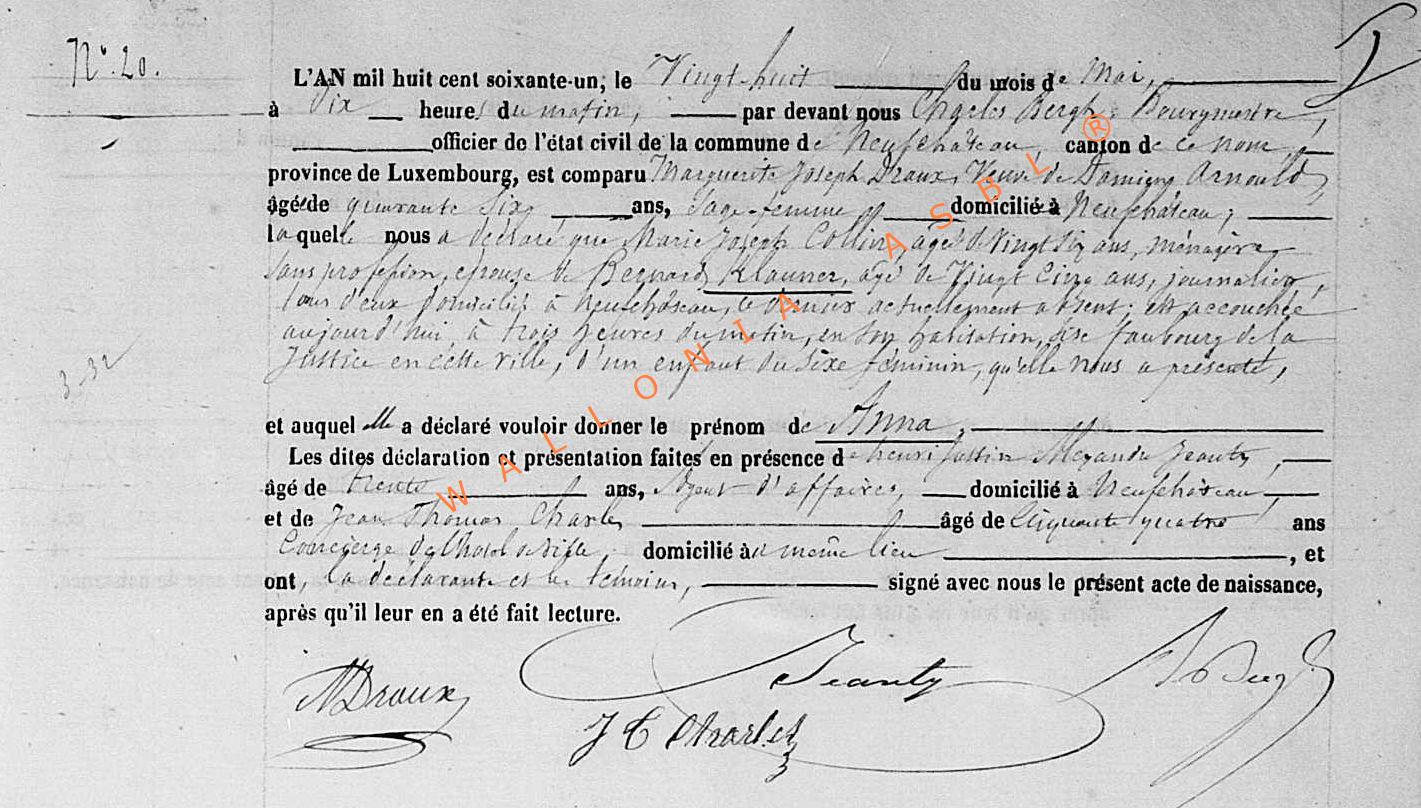 N° 20.
L'AN mil huit cent soixante-un, le Vingt-huit du mois de Mai,
à dix heures du matin, par devant nous Charles Bergh, Bourgmestre,
officier de l'état civil de la commune de Neufchâteau, canton de ce nom,
province de Luxembourg, est comparu Marguerite Joseph Draux, Veuve de Damigny Arnould,
âgée de quarante six ans, Sage-femme domiciliée à Neufchâteau,
laquelle nous a déclaré que Marie Joseph Collin, âgée de Vingt six ans, ménagère
sans profession, épouse de Bernard Klauner, âgé de Vingt Cinq ans, journalier,
tous deux domiciliés à Neufchâteau, le dernier actuellement absent; est accouchée
aujourd'hui, à trois heures du matin, en son habitation, sise faubourg de la
Justice en cette ville, d'un enfant du sexe féminin, qu'elle nous a présenté,
3-32
et auquel elle a déclaré vouloir donner le prénom de Anna,
Les dites déclaration et présentation faites en présence de henri Justin Alexandre Jeanty,
âgé de trente ans, Agent d'affaires, domicilié à Neufchâteau,
et de Jean Thomas Charlet âgé de Cinquante quatre ans
Concierge de l'hotel de ville, domicilié au même lieu, et
ont, la déclarante et les témoins, signé avec nous le présent acte de naissance,
après qu'il leur en a été fait lecture.
MDraux
Jeanty
J T Charlet
WALLONIA ASBL ®